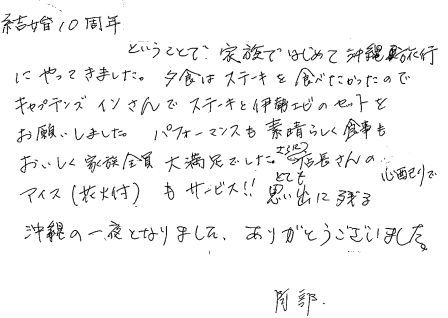 結婚10周年
ということで、家族ではじめて沖縄旅行
にやってきました。夕食はステーキを食べたかったので
キャプテンズインさんでステーキと伊勢エビのセットを
お願いしました。パフォーマンスも素晴らしく食事も
おいしく家族全員大満足でした。さらに店長さんの心配りで
アイス(花火付)もサービス!!とても思い出に残る
沖縄の一夜となりました、ありがとうございました。
阿部.